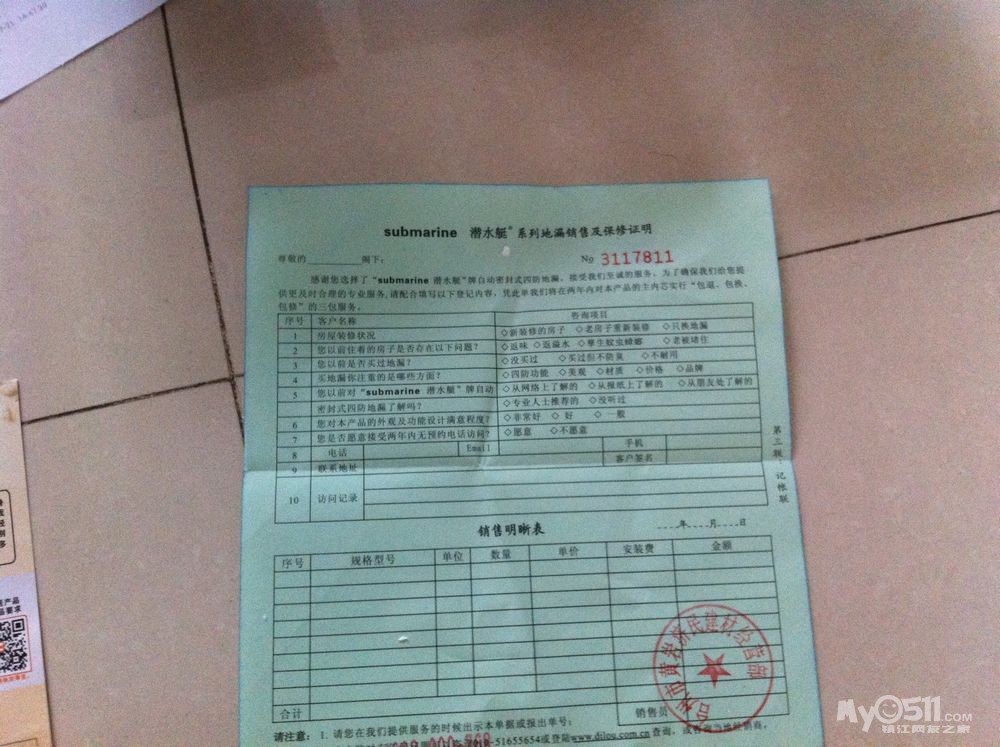 submarine 潜水艇® 系列地漏销售及保修证明
尊敬的 阁下: № 3117811
感谢您选择了"submarine 潜水艇"牌自动密封式四防地漏,接受我们至诚的服务。为了确保我们给您提
供更及时合理的专业服务,请配合填写以下登记内容,凭此单我们将在两年内对本产品的主内芯实行"包退、包换、
包修"的三包服务。
序号 客户名称 咨询项目
1 房屋装修状况 ◇新装修的房子 ◇老房子重新装修 ◇只换地漏
2 您以前住着的房子是否存在以下问题? ◇返味 ◇返溢水 ◇孽生蚊虫蟑螂 ◇老被堵住
3 您以前是否买过地漏? ◇没买过 ◇买过但不防臭 ◇不耐用
4 买地漏你注重的是哪些方面? ◇四防功能 ◇美观 ◇材质 ◇价格 ◇品牌
5 您以前对"submarine 潜水艇"牌自动 ◇从网络上了解的 ◇从报纸上了解的 ◇从朋友处了解的
密封式四防地漏了解吗? ◇专业人士推荐的 ◇没听过
6 您对本产品的外观及功能设计满意程度? ◇非常好 ◇好 ◇一般
7 您是否愿意接受两年内无预约电话访问? ◇愿意 ◇不愿意
8 电话 Email 手机
9 联系地址 客户签名
10 访问记录
第三联 记帐联
销售明晰表 年 月 日
序号 规格型号 单位 数量 单价 安装费 金额
合计 销售员
市黄岩 氏建材经营部
请注意: 1. 请您在我们提供服务的时候出示本单据或报出单号;
-51655654或登陆www.dilou.com.cn查询,或
产品
要求
My0511.COM
镇江网友之家